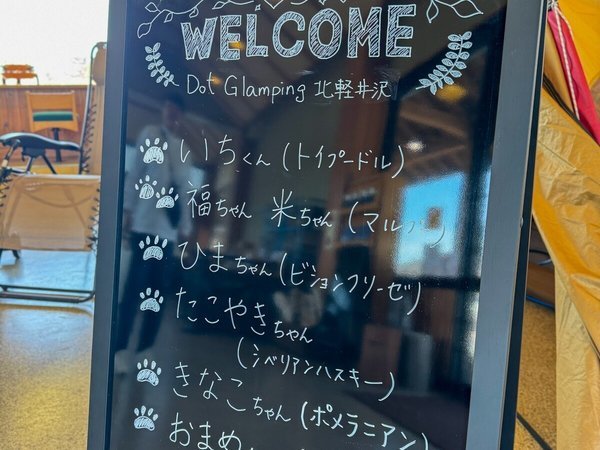 WELCOME
Dot Glamping 北軽井沢
いちくん (トイプードル)
福ちゃん 米ちゃん
ひまちゃん (ビションフリーゼ)
たこやきちゃん
(シベリアンハスキー)
きなこちゃん (ポメラニアン)
おまめ